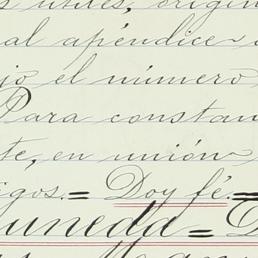 s utiles, origin
al apéndice
jo el número
Para constan
te, en unión
igos.= Doy fé.=
uneda=